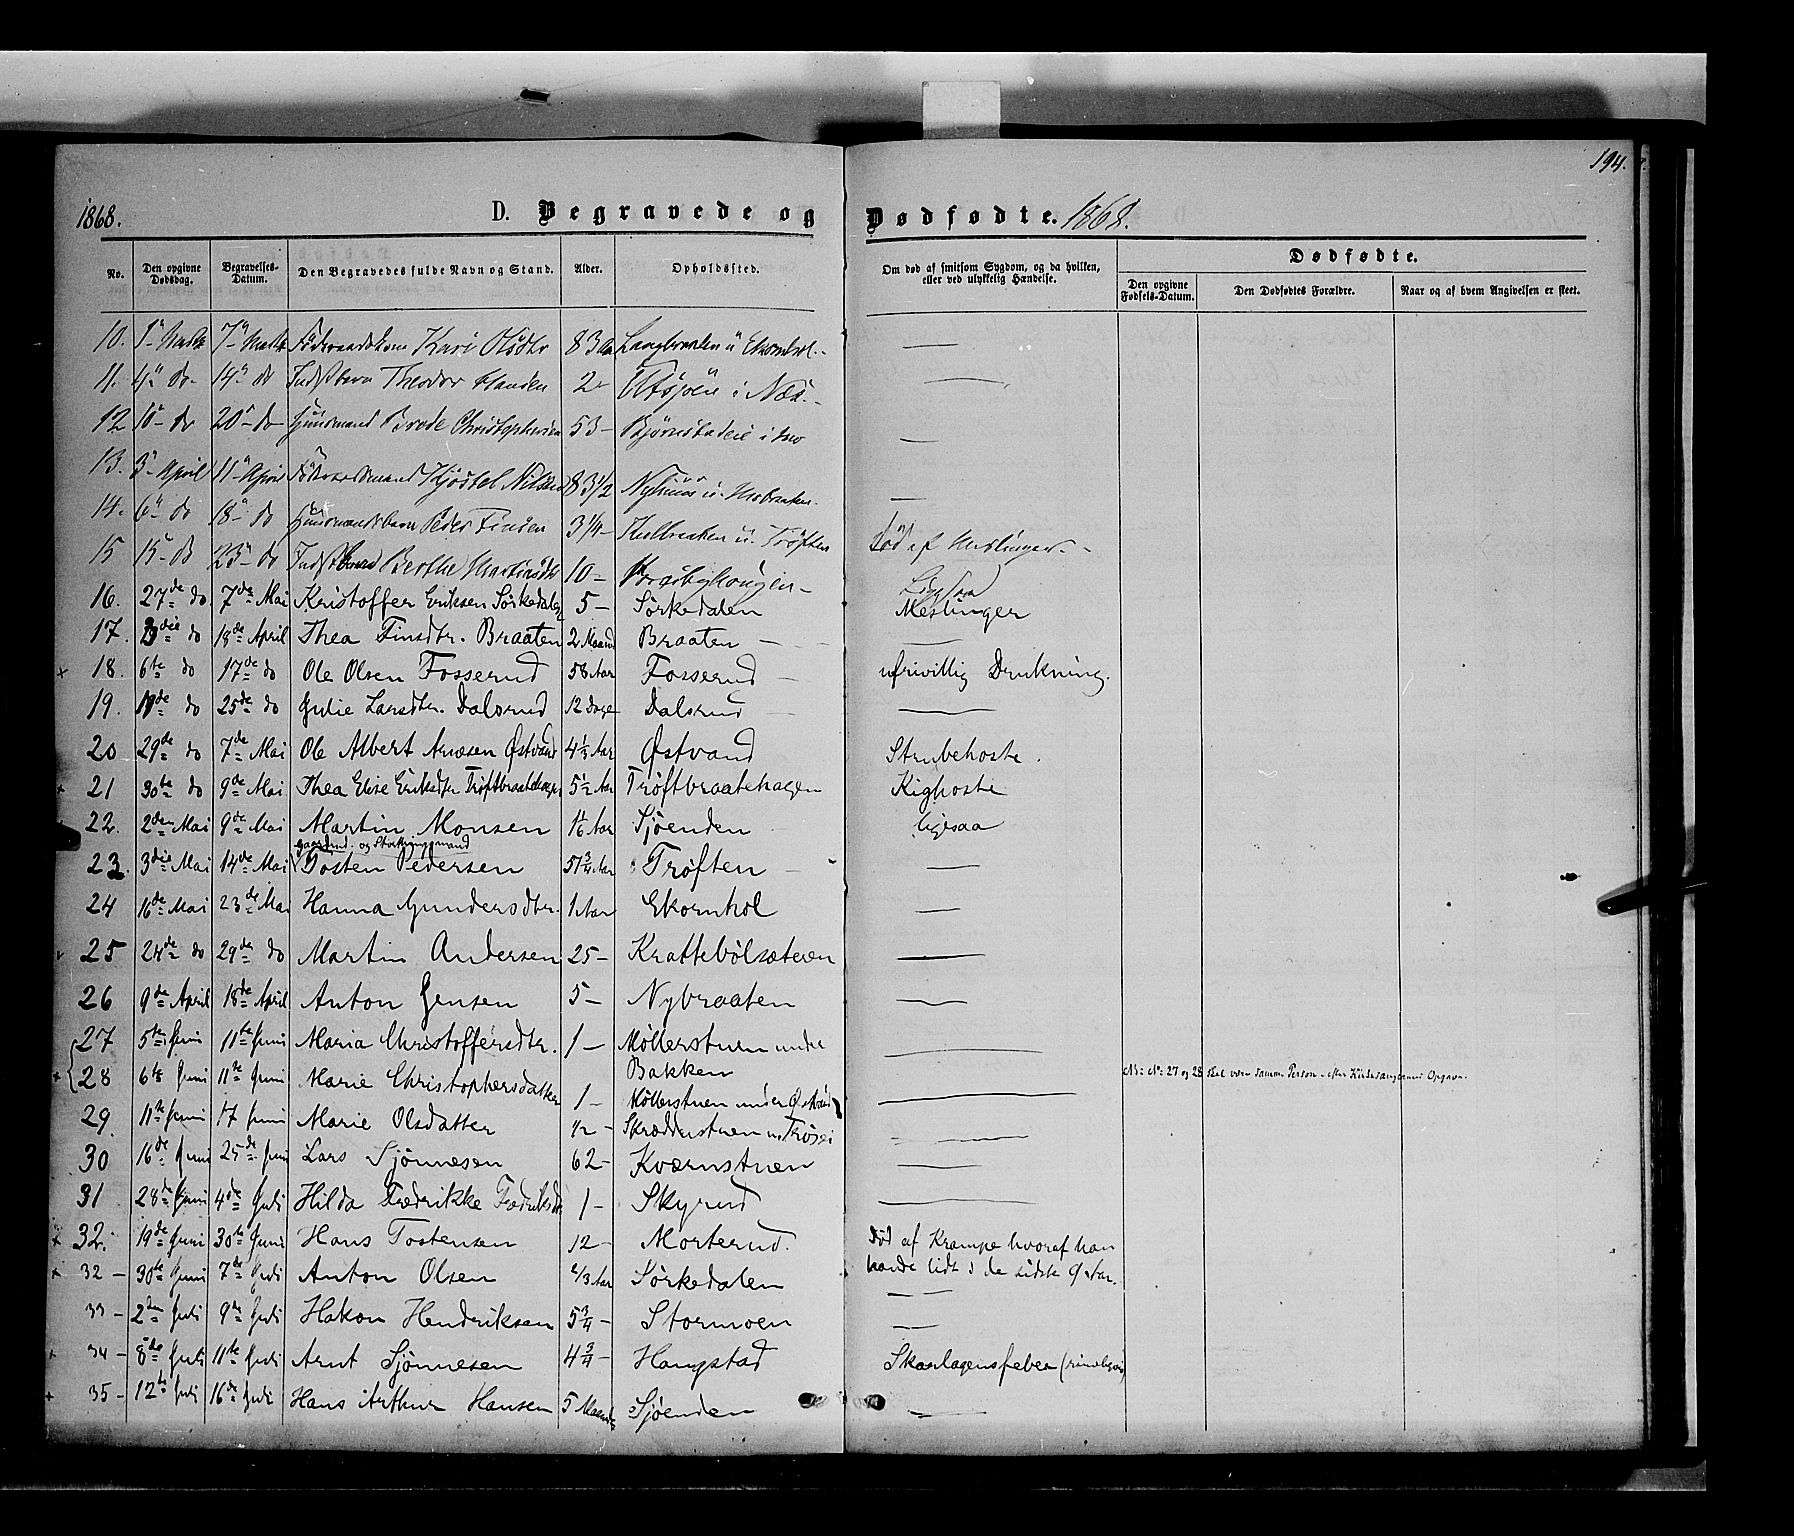 194.
1868. D. Begravede og Dødfødte. 1868.
No. Den opgivne Dødsdag. Begravelses-Datum. Den Begravedes fulde Navn og Stand. Alder. Opholdssted. Om død af smitsom Sygdom, og da hvilken, eller ved ulykkelig Hændelse. Dødfødte.
Den opgivne Fødsels-Datum. Den Dødfødtes Forældre. Naar og af hvem Angivelsen er skeet.
10. 1 7 Kari Olsdtr 83 Aar —
11. 4 do 14 do Theodor Hansen 2 i Næs. —
12 10 do 20 do Huusmand Christophersen 53 — —
13. 3 April 11 April Nilsen 83 1/2 —
14. 6 do 18 do Huusmandsbarn Peder Finsen 3 1/4 — Død af Meslinger.
15 15 do 23 do Berthe Martinsdtr 10 — Ligesaa
16. 27de do 7de Mai Kristoffer Eriksen Sörkedalen 5 — Sörkedalen Meslinger
17. 3die do 18de April Thea Finsdtr. Braaten 2 Maaned Braaten — —
18. 6te do 17de do Ole Olsen Fosserud 58 Aar Fosserud — ufrivillig Drukning.
19. do 25de do Julie Larsdtr. Dalsrud 12 Dage Dalsrud — —
20 29de do 7de Mai Ole Albert Arnesen Østvand 4 1/3 Aar Østvand Strubehoste.
21 30te do 9de Mai Thea Elise Eriksdtr Trøftbraatehagen 5 1/2 Aar Trøftbraatehagen Kighoste
22. 2den Mai 9de Mai Martin Monsen 1/6 Aar Sjøenden ligesaa
Gaardmd. og Storthingsmand
23. 3die Mai 14de Mai Tosten Pedersen 51 3/4 Aar Trøften — —
24 16de Mai 23de Mai Hanna Gundersdtr. 1 Aar Ekornhol —
25 24de do 29de do Martin Andersen 25 — Krattebölsæteren —
26 9de April 18de April Anton Jensen 5 — Nybraaten —
27 5te Juni 11te Juni Maria Christoffersdtr. 1 — Møllerstuen under Bakken —
28 6te Juni 11te Juni Marie Christophersdatter 1 — Møllerstuen under Østvand — NB: No 27 og 28 skal være samme Person - efter Kirkesangerens Opgave.
29. 11te Juni 17 Juni Marie Olsdatter 1/2 — Skrædderstuen u. —
30 16de Juni 25de Juni Lars Sjönnesen 62 — Kværnstuen —
31 28de Juni 4de Juli Hilda Fredrikke Fredriksdtr 1 — Skyrud —
32. 19de Juni 30te Juni Hans Tostensen 12 — Morterud. Død af Krampe hvoraf han
havde lidt i de sidste 9 Aar.
32 — 30te Juni 7de Juli Anton Olsen 2/3 Aar Sörkedalen — —
33 — 2den Juli 9de Juli Hakon Hendriksen 5 3/4 — Stormoen — —
34 — 8de Juli 11te Juli Arnt Sjönnesen 4 3/4 — Haugstad Skarlagensfeber
35 — 12te Juli 16de Juli Hans Arthur Hansen 5 Maaneder Sjøenden —